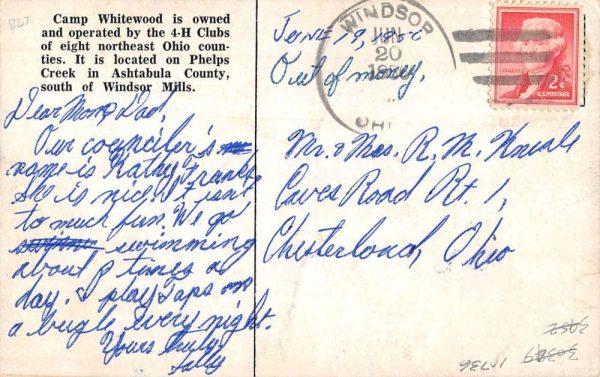 Camp Whitewood is owned
and operated by the 4-H Clubs
of eight northeast Ohio coun-
ties. It is located on Phelps
Creek in Ashtabula County,
south of Windsor Mills.
Dear Mom & Dad,
Our counciler's
name is Kathy Frank
she is nice. It isn't
to much fun. We go
swimming
about 2 times a
day. I play Taps on
a bugle every night.
Yours truly
Sally
June 19, 1956
Out of money.
WINDSOR
JUN
20
OHIO
2¢
U.S. POSTAGE
Mr. & Mrs. R. M.
Caves Road Rt. 1,
Chesterland, Ohio
B27
1736